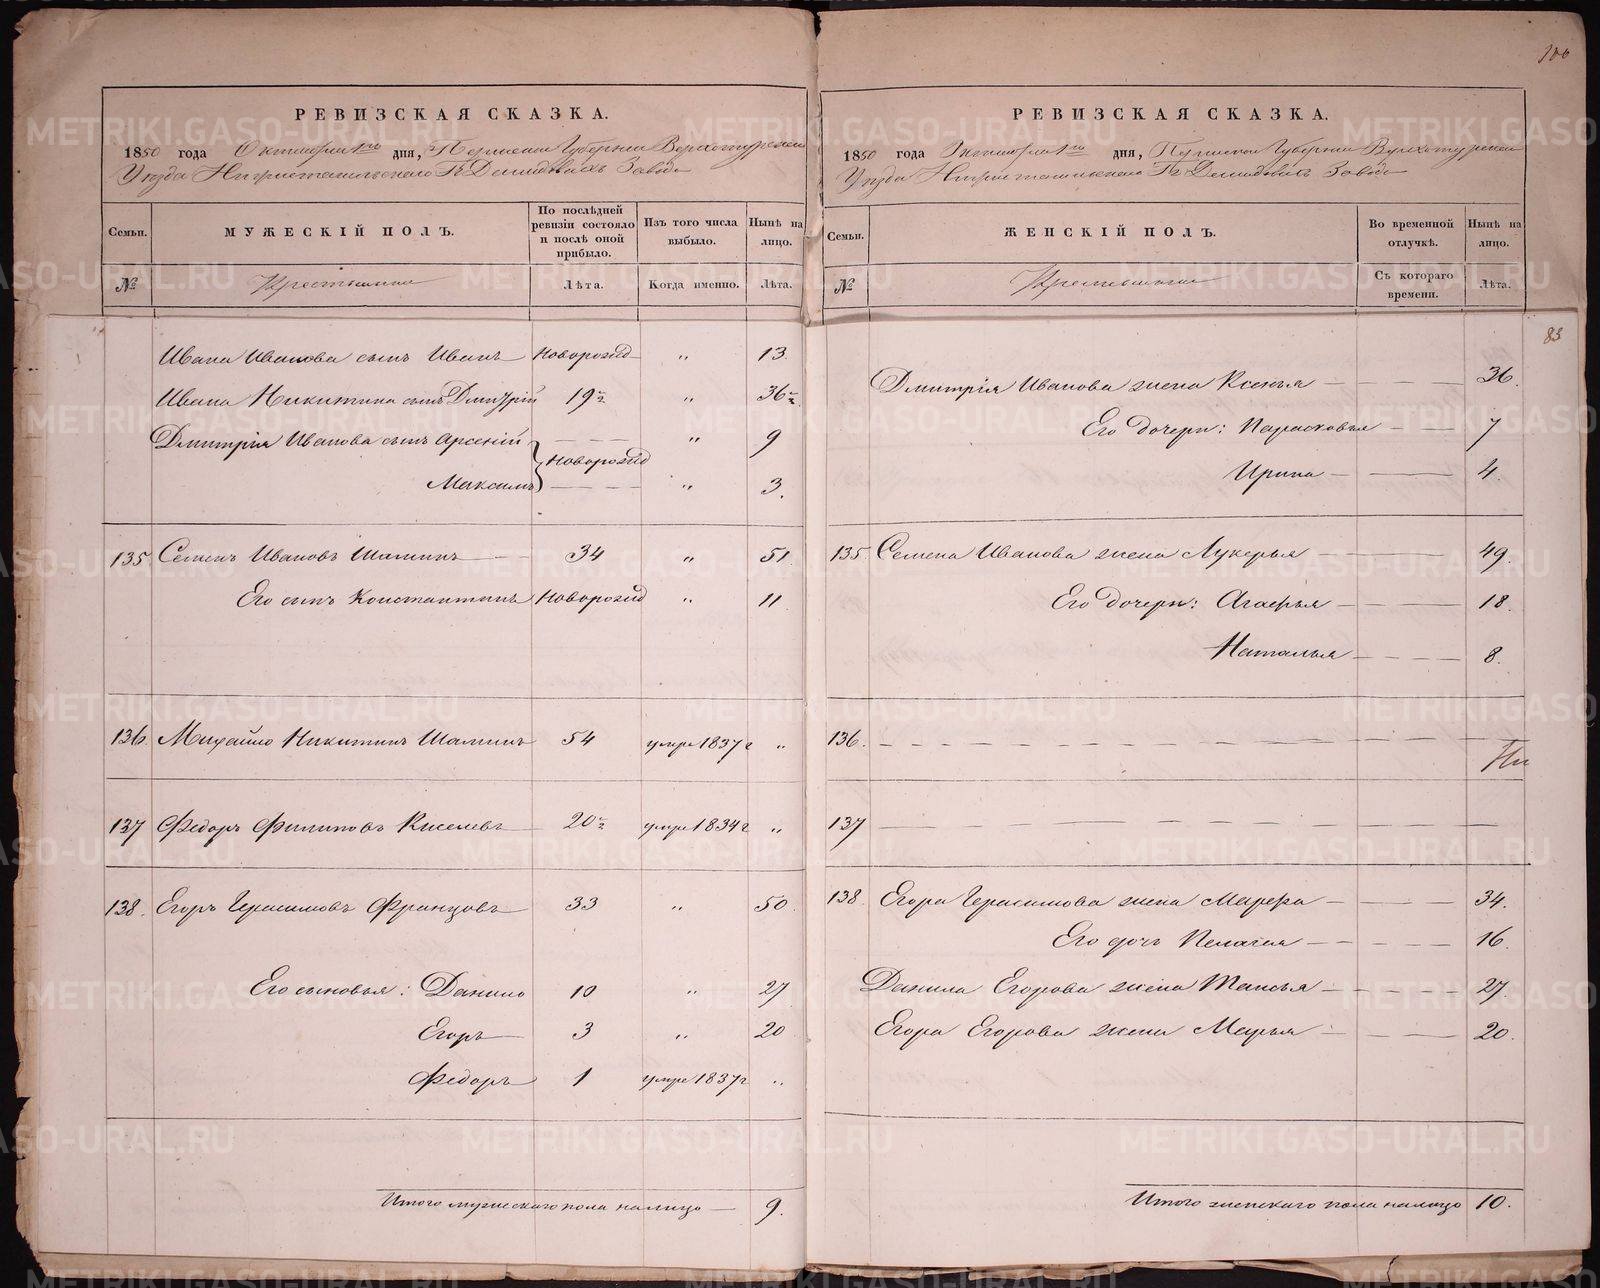 100
РЕВИЗСКАЯ СКАЗКА.
1850 года Октября 1го дня, Пермской Губернии Верхотурскаго
Уезда Нижнетагильскаго Гг. Демидовыхъ Завода
Семьи. МУЖЕСКІЙ ПОЛЪ. По последней ревизіи состояло и после оной прибыло. Изъ того числа выбыло. Ныне на лицо.
№ Крестьяне Лета. Когда именно. Лета.
Ивана Иванова сынъ Иванъ Новорожд „ 13.
Ивана Никитина сынъ Дмитрій 19 ½ „ 36 ½
Дмитрія Иванова сынъ Арсеній Новорожд „ 9
Максимъ „ 3.
135 Семенъ Ивановъ Шаминъ 34 „ 51.
Его сынъ Константинъ Новорожд „ 11
136 Михайло Никитинъ Шаминъ 54 умре 1837 г „
137 Федоръ Филиповъ Киселевъ 20 ½ умре 1834 г „
138. Егоръ Герасимовъ Францовъ 33 „ 50.
Его сыновья: Данило 10 „ 27
Егоръ 3 „ 20
Федоръ 1 умре 1837 г „
Итого мужескаго пола налицо 9.
РЕВИЗСКАЯ СКАЗКА.
1850 года Октября 1го дня, Пермской Губернии Верхотурскаго
Уезда Нижнетагильскаго Гг. Демидовыхъ Завода
Семьи. ЖЕНСКІЙ ПОЛЪ. Во временной отлучкѣ. Нынѣ на лицо.
№ Крестьянки Съ котораго времени. Лѣта.
83
Дмитрія Иванова жена Ксенья 36.
Его дочери: Парасковья 7
Ирина 4.
135 Семена Иванова жена Лукерья 49.
Его дочери: Агафья 18.
Наталья 8.
136.
137
138. Егора Герасимова жена Марфа 34.
Его дочь Пелагея 16.
Данила Егорова жена Таисья 27.
Егора Егорова жена Марья 20.
Итого женскаго пола налицо 10.
METRIKI.GASO-URAL.RU